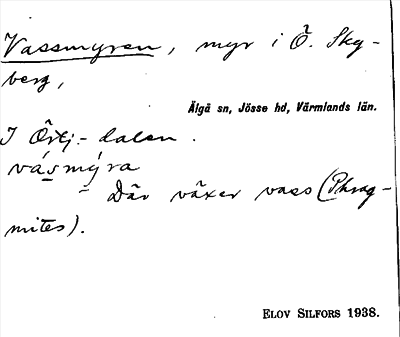 Vassmyren, myr i Ö. Sky-
berg,
Älgå sn, Jösse hd, Värmlands län.
I Örtj:-dalen.
vásmýra
Där växer vass (Phrag-
mites).
ELOV SILFORS 1938.